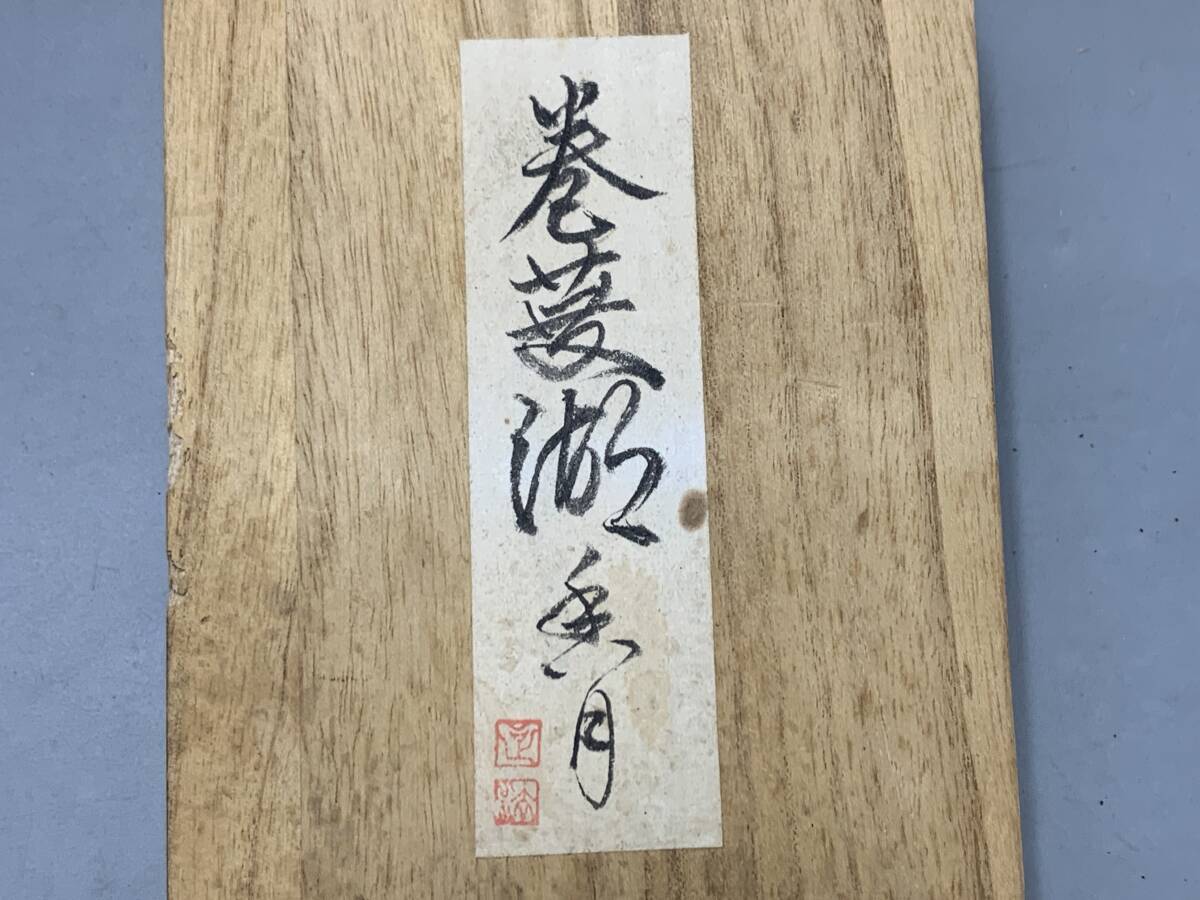 巻菱湖香月